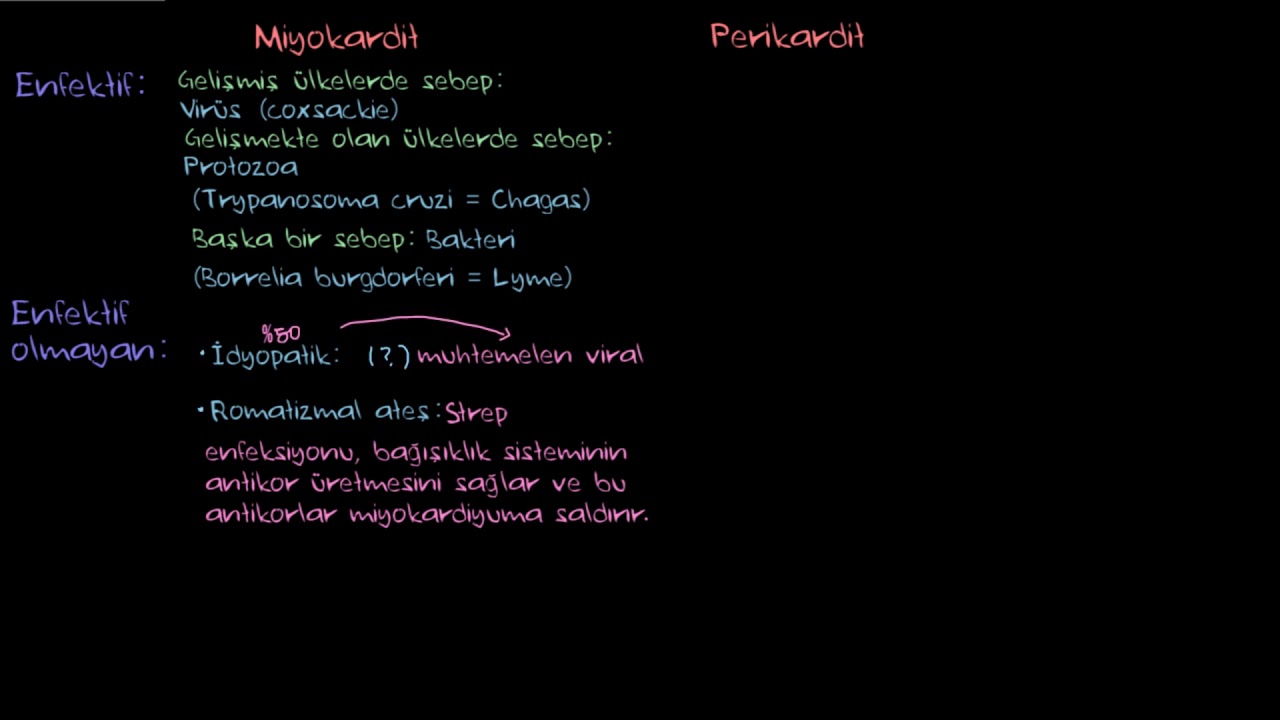 Miyokardit
Perikardit
Enfektif:
Gelişmiş ülkelerde sebep:
Virüs (coxsackie)
Gelişmekte olan ülkelerde sebep:
Protozoa
(Trypanosoma cruzi = Chagas)
Başka bir sebep: Bakteri
(Borrelia burgdorferi = Lyme)
Enfektif
olmayan:
%50
• İdyopatik: (?) muhtemelen viral
• Romatizmal ateş: Strep
enfeksiyonu, bağışıklık sisteminin
antikor üretmesini sağlar ve bu
antikorlar miyokardiyuma saldırır.